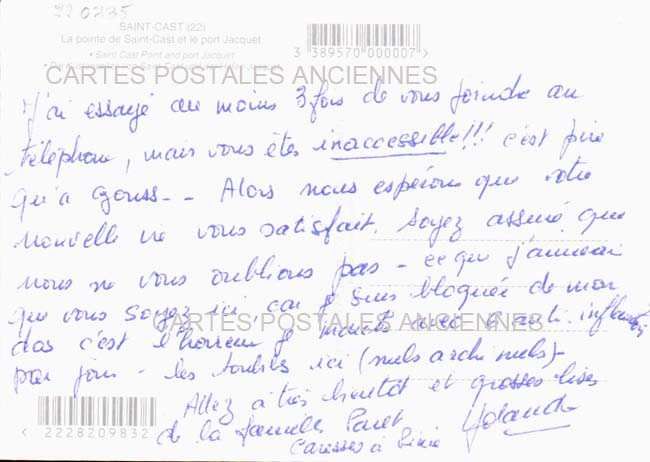 220335
SAINT-CAST (22)
La pointe de Saint-Cast et le port Jacquet
• Saint Cast Point and port Jacquet
3 389570 000007 >
CARTES POSTALES ANCIENNES
J'ai essayé au moins 3 fois de vous joindre au
téléphone, mais vous êtes inaccessible!!! c'est pire
qu'à - - Alors nous espérons que votre
nouvelle vie vous satisfait. Soyez assuré que
nous ne vous oublions pas - ce que j'aimerai
que vous soyez ici, car je suis bloquée de mon
dos c'est l'horreur je avec d'anti.
CARTES POSTALES ANCIENNES
par jour - les ici (nuls archi nuls) -
Allez à très bientôt et grosses bises
de la famille Yolande
Caresses à
< 2228209832